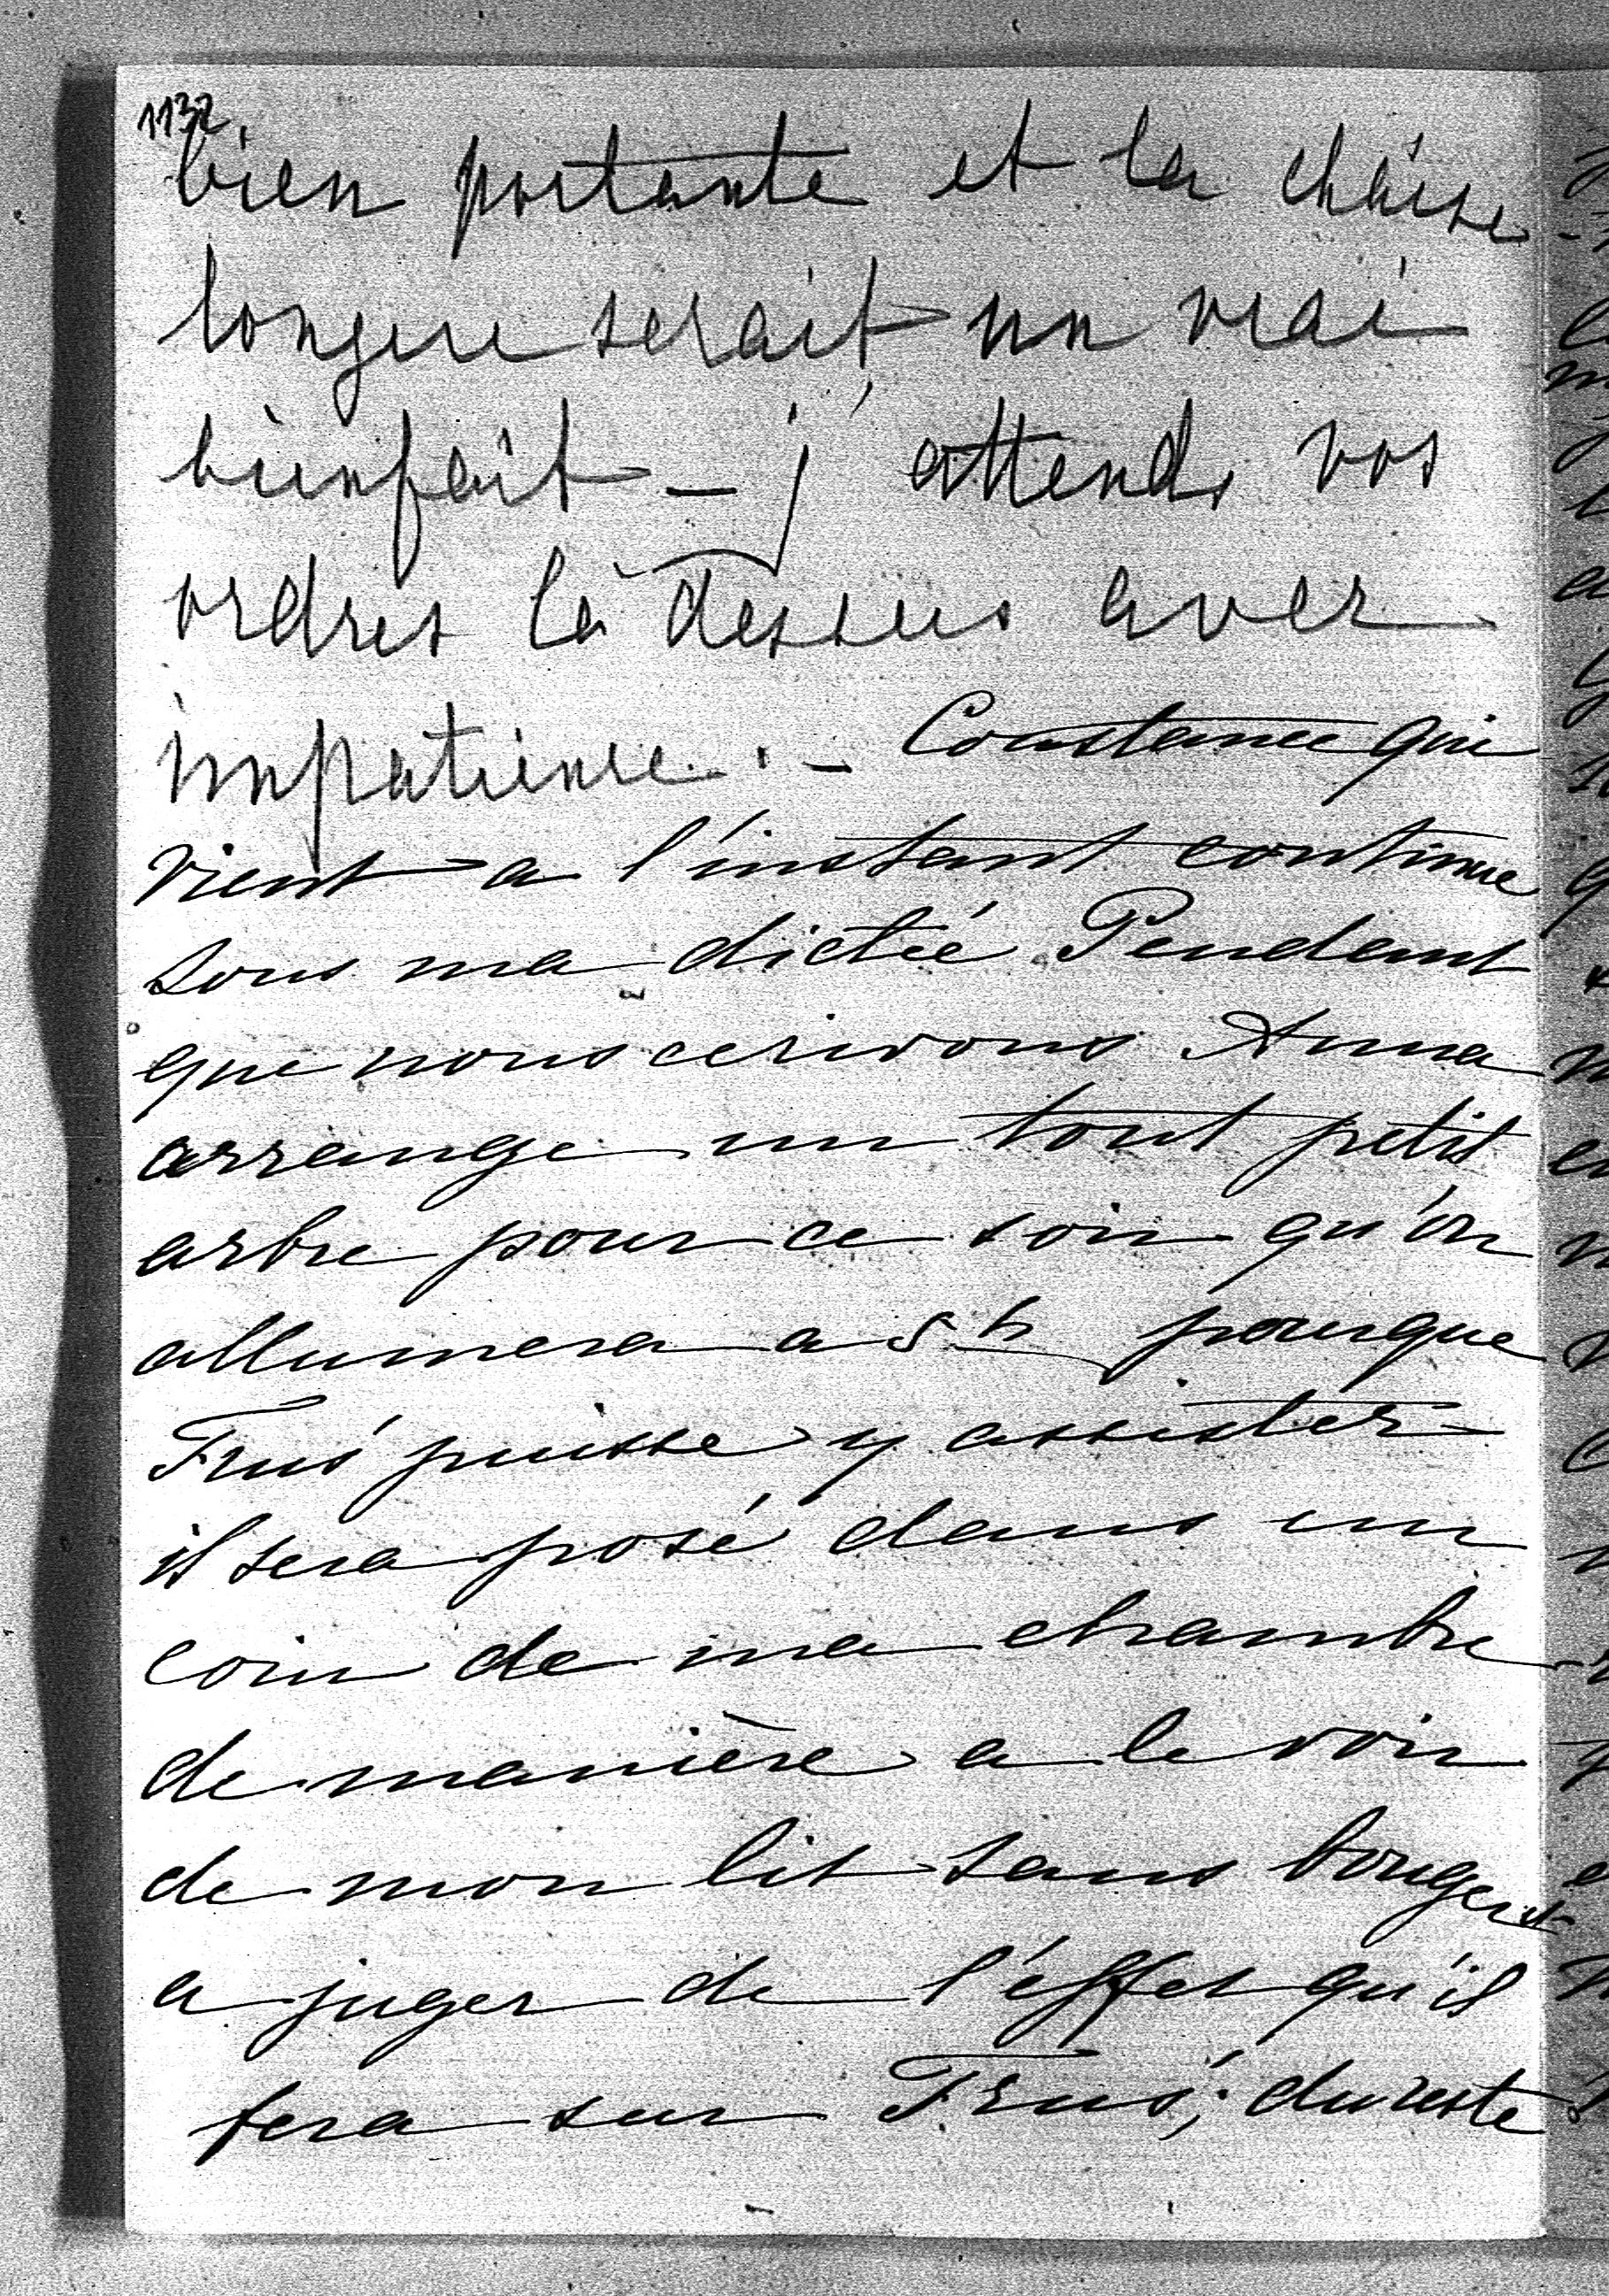 1132
bien portante et la chaise
longue serait un vrai
bienfait – j'attends vos
ordres là dessus avec
impatience. – Constance qui
vient a l'instant continue
sous ma dictée. Pendant
que nous ecrivons Anna
arrange un tout petit
arbre pour ce soir qu'on
allumera a 5 h pourque
Frus puisse y assister –
il sera posé dans un
coin de ma chambre
de manière a le voir
de mon lit sans bouger et
a juger de l'éffet qu'il
fera sur Frus; du reste